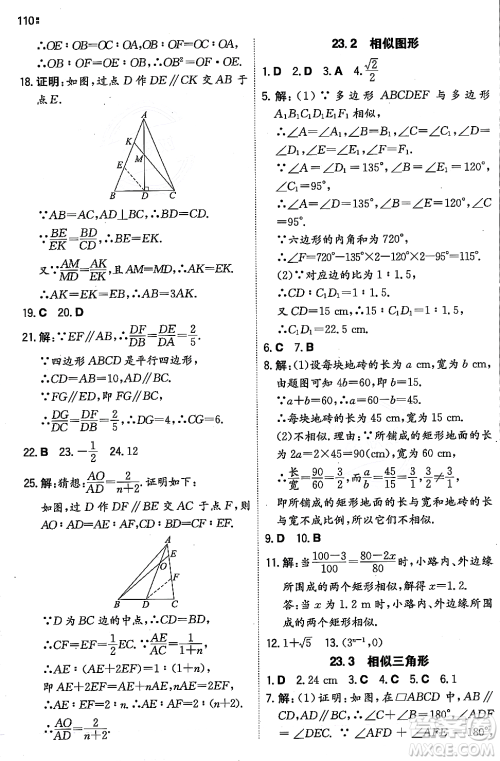 110
∴OE∶OB=OF∶OE,OB∶OF=OF∶OD.
∴OB∶OF=OE∶OB.∴OB²=OF·OE.
18.证明:如图,过点 D 作 DE∥CK 交 AB 于
点 E.
A
K
M
E
B D C
∵AB=AC,AD⊥BC,∴BD=CD.
∵BE/EK=BD/CD,∴BE=EK.
又∵AM/MD=AK/EK,AM=MD,
∴AK=EK=BE.∴AB=3AK.
19.C 20.D
21.解:∵EF∥AB,∴DF/DB=DE/DA=2/5.
∵四边形 ABCD 是平行四边形,
∴CD=AB=10.
∵FG∥ED,即 FG∥BC,
∴DG/DC=DF/DB=2/5.∴DG=2/5CD=4.∴CG=6.
22.B 23.-1/2 24.12
25.解:猜想:AO/AD=2/(n+2).证明如下:
如图,过 D 作 DF∥BE 交 AC 于点 F,则
AO∶AD=AE∶AF.
A
E
O
F
B D C
∵D 为 BC 边的中点,∴CF=EF=
1/2EC.∵AE/AC=1/(n+1),
即 AE∶(AE+2EF)=1∶(n+1).
∴AE∶EF=2∶n.∴AE∶AF=2∶(n+2).
∴AO/AD=AE/AF=2/(n+2).
23.2 相似图形
1.D 2.D 3.A 4.√2/2
5.解:(1)∵多边形 ABCDEF 与多边形
A₁B₁C₁D₁E₁F₁ 相似,
∴∠A=∠A₁,∠B=∠B₁,∠C=∠C₁,
∠D=∠D₁,∠E=∠E₁,∠F=∠F₁.
∴∠A=∠D₁=135°,∠B=120°,∠C=
∠C₁=95°.
∵六边形的内角和为 720°,
∴∠F=720°-135°×2-120°×2-95°=115°.
(2)∵对应边的比为 1∶1.5,
又∵CD=15 cm,∴15∶C₁D₁=1∶1.5,
∴C₁D₁=22.5 cm.
6.C 7.B
8.解:(1)设每块地砖的长为 a cm,宽为 b cm,
由题图可知 4b=60,解得 b=15.
∵a+b=60,∴a=60-b=45.
∴每块地砖的长为 45 cm,宽为 15 cm.
(2)不相似.理由:∵所铺成的矩形地面的长
为 2a=2×45=90(cm),宽为 60 cm,
∴长/宽=90/60=3/2.∵45/15=3/1,3/1≠3/2,
即所铺成的矩形地面的长与宽和每块地砖
的长与宽不成比例,
∴所铺成的矩形地面与每块地砖不相似.
9.D 10.B
11.解:当(100-3)/100=(80-2x)/80时,小路内、外边缘
所围成的两个矩形相似,解得 x=1.2.
答:当 x 为 1.2 m 时,小路内、外边缘所围成
的两个矩形相似.
12.1+√5 13.(3ⁿ⁻¹,0)
23.3 相似三角形
1.D 2.24 cm 3.C 4.C 5.C 6.1
7.解:(1)证明:如图,在▱ABCD 中,
∵∠B+∠C=180°,∠ADF
=∠DEC.∵∠AFD+∠AFE=180°